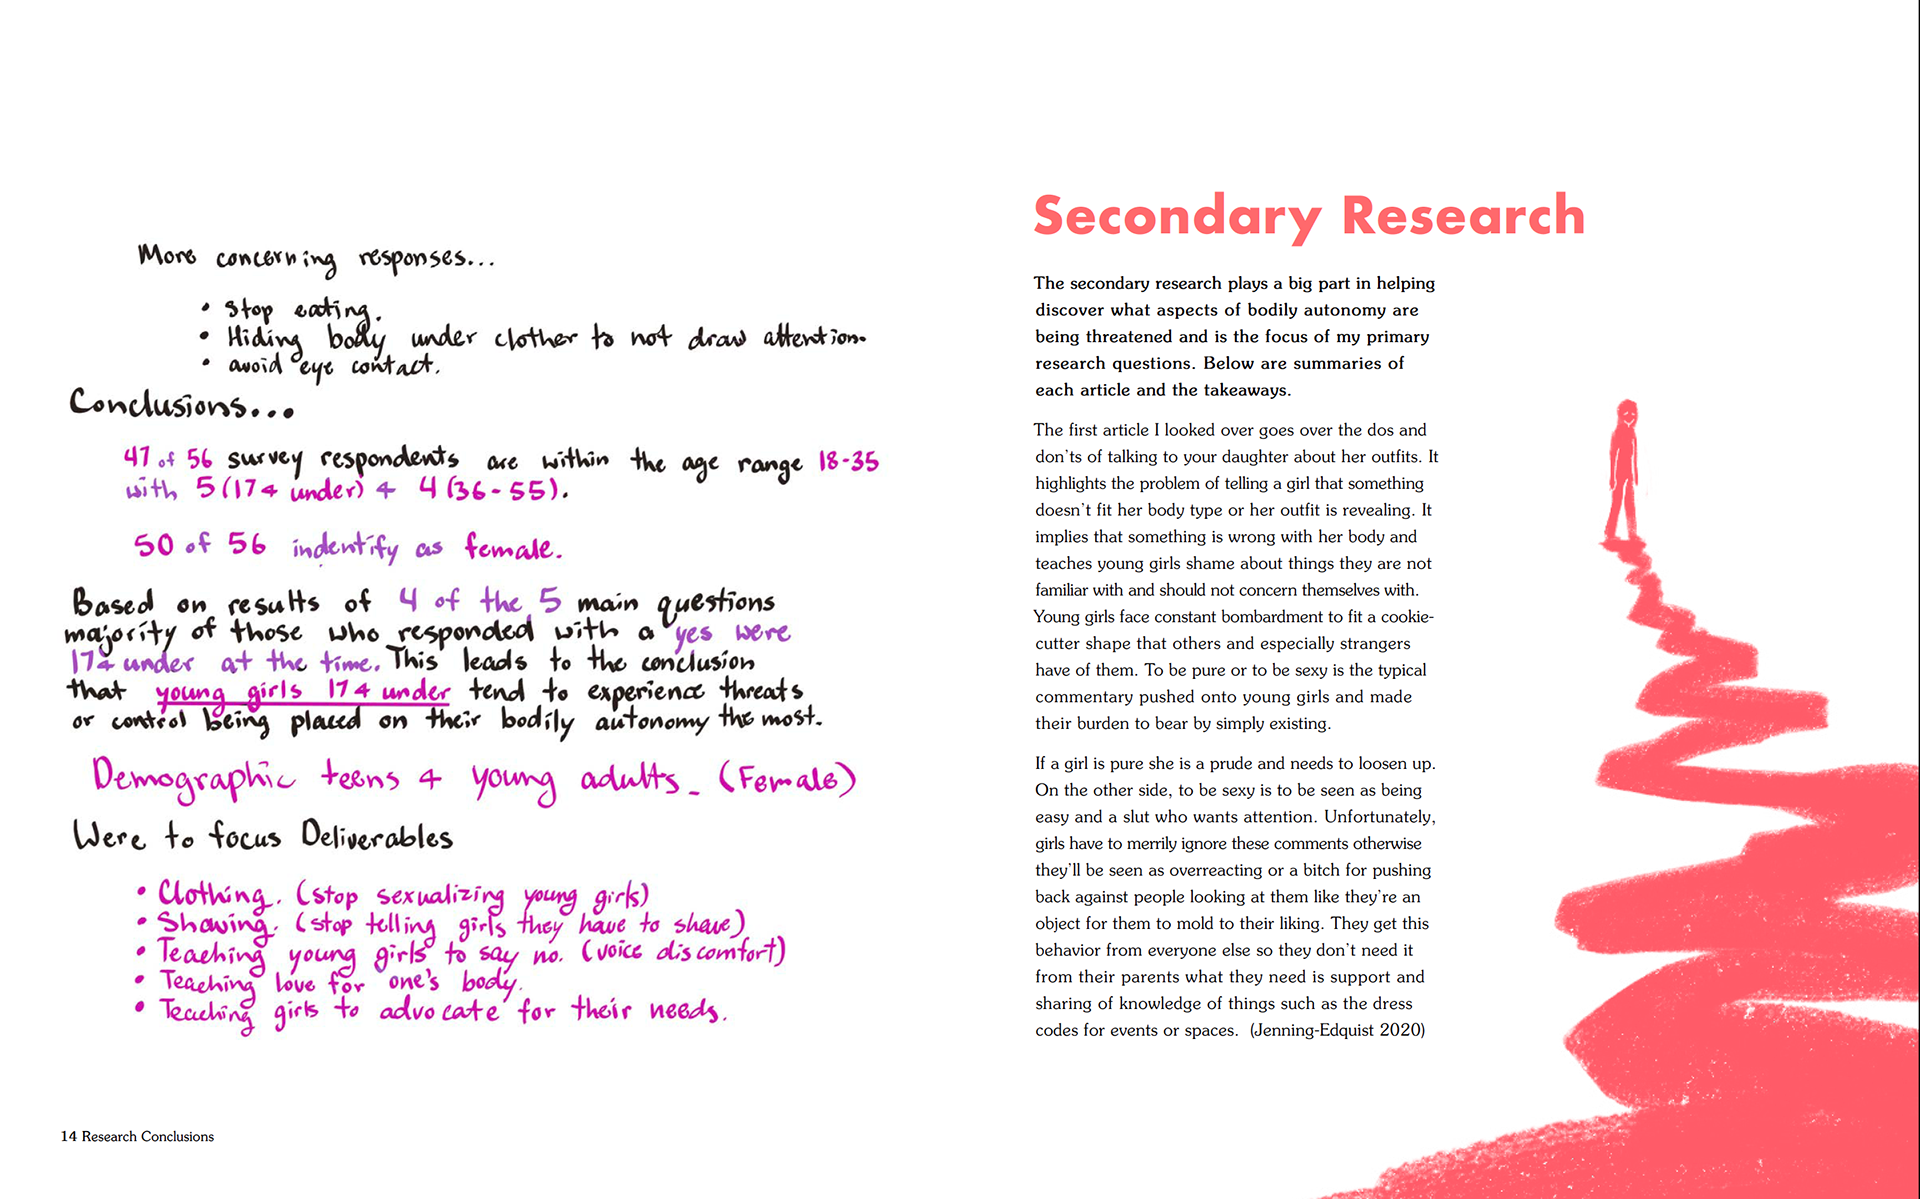 More concerning responses...
• Stop eating.
• Hiding body under clother to not draw attention.
• avoid eye contact.
Conclusions...
47 of 56 survey respondents are within the age range 18-35
with 5 (17 & under) & 4 (36-55).
50 of 56 indentify as female.
Based on results of 4 of the 5 main questions
majority of those who responded with a yes were
17 & under at the time. This leads to the conclusion
that young girls 17 & under tend to experience threats
or control being placed on their bodily autonomy the most.
Demographic teens & young adults_ (Female)
Were to focus Deliverables
• Clothing. (stop sexualizing young girls)
• Shaving. (stop telling girls they have to shave)
• Teaching young girls to say no. (voice discomfort)
• Teaching love for one's body.
• Teaching girls to advocate for their needs.
14 Research Conclusions
Secondary Research
The secondary research plays a big part in helping
discover what aspects of bodily autonomy are
being threatened and is the focus of my primary
research questions. Below are summaries of
each article and the takeaways.
The first article I looked over goes over the dos and
don'ts of talking to your daughter about her outfits. It
highlights the problem of telling a girl that something
doesn't fit her body type or her outfit is revealing. It
implies that something is wrong with her body and
teaches young girls shame about things they are not
familiar with and should not concern themselves with.
Young girls face constant bombardment to fit a cookie-
cutter shape that others and especially strangers
have of them. To be pure or to be sexy is the typical
commentary pushed onto young girls and made
their burden to bear by simply existing.
If a girl is pure she is a prude and needs to loosen up.
On the other side, to be sexy is to be seen as being
easy and a slut who wants attention. Unfortunately,
girls have to merrily ignore these comments otherwise
they'll be seen as overreacting or a bitch for pushing
back against people looking at them like they're an
object for them to mold to their liking. They get this
behavior from everyone else so they don't need it
from their parents what they need is support and
sharing of knowledge of things such as the dress
codes for events or spaces. (Jenning-Edquist 2020)